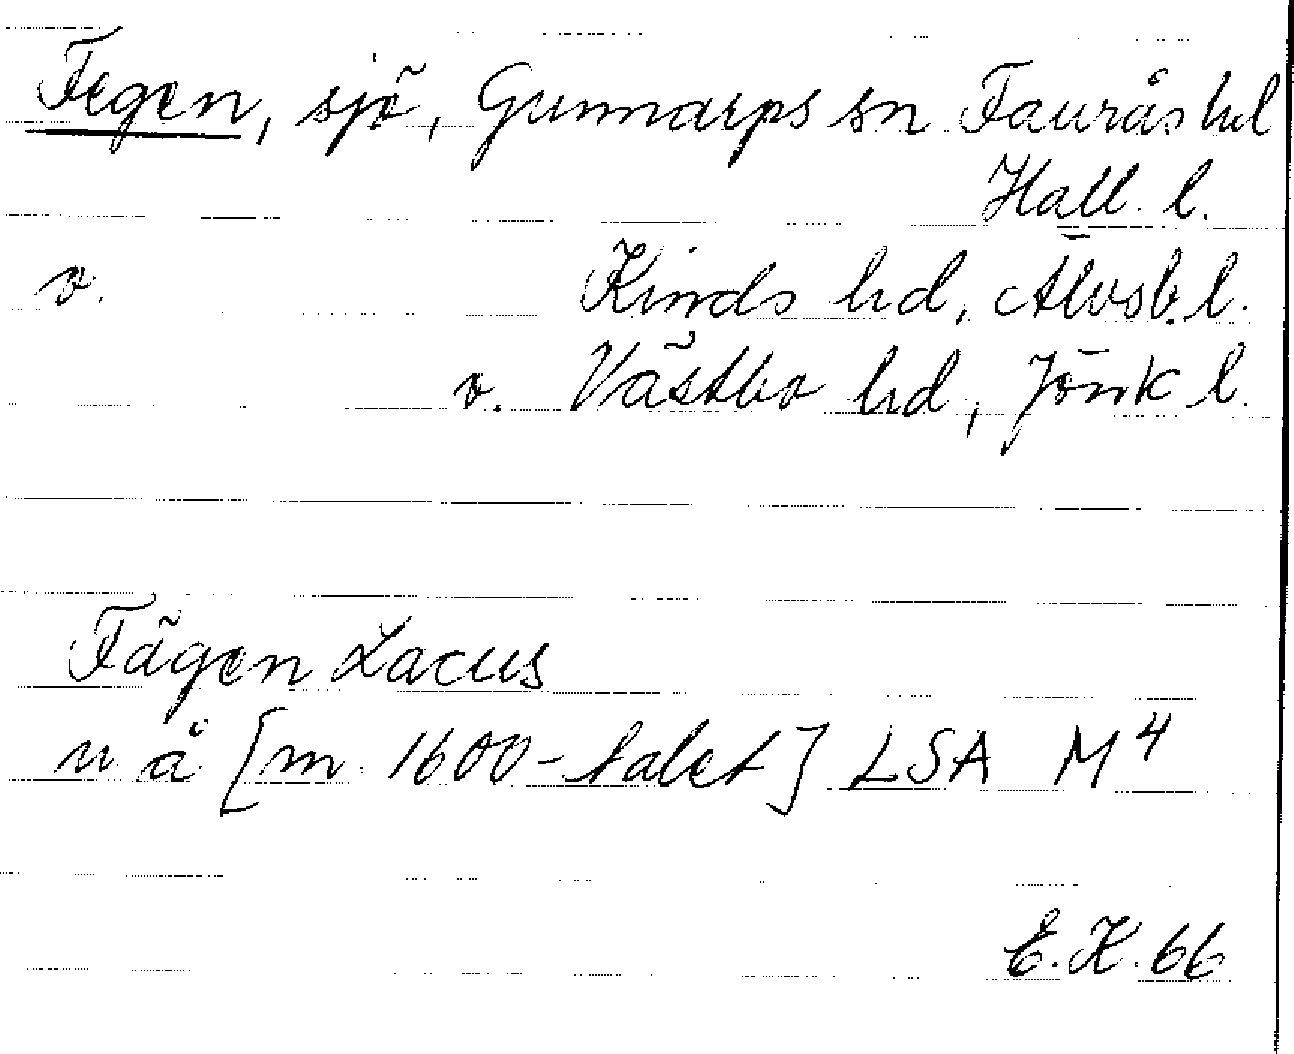 Fegen, sjö, Gunnarps sn Faurås hd
Hall. l.
o. Kinds hd, Älvsb. l.
o. Västbo hd, Jönk l.
Fägen Lacus
u å [m 1600-talet] LSA M4
E.H. 66